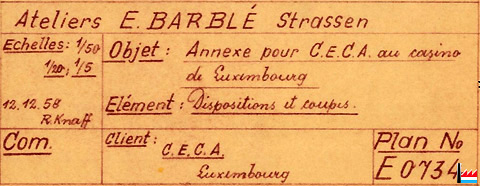 Ateliers E. BARBLÉ Strassen
Echelles: 1/50
1/20; 1/5
12.12.58
R. Knaff
Objet: Annexe pour C.E.C.A. au casino
de Luxembourg
Elément: Dispositions et coupes.
Com.
Client: C.E.C.A.
Luxembourg
Plan No
E0734